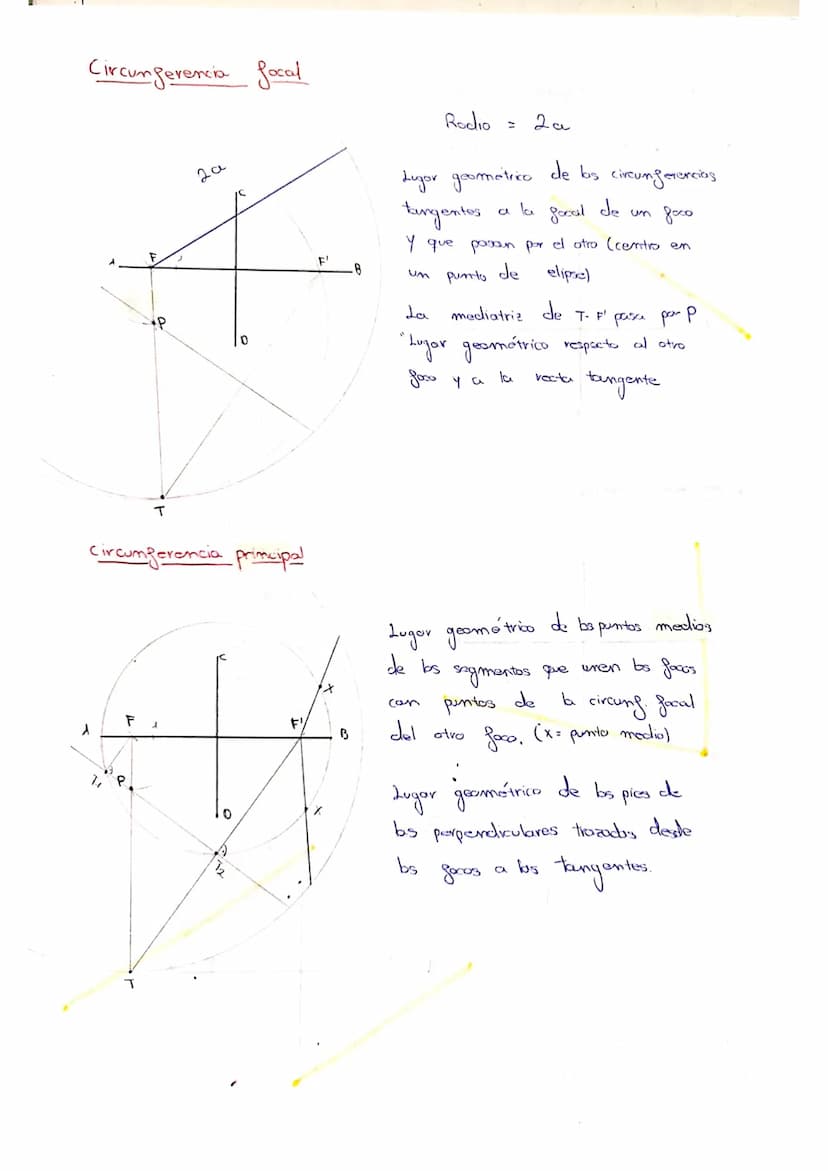 Circunferencia focal
Radio = 2a
2a
Lugar geométrico de las circunferencias
tangentes a la focal de un foco
y que pasan por el otro (centro en
un punto de elipse)
La mediatriz de T-F' pasa por P
"Lugar geométrico respecto al otro
foco y a la recta tangente
C
A F F' B
P
D
T
Circunferencia principal
Lugar geométrico de los puntos medios
de los segmentos que unen los focos
con puntos de la circunf. focal
del otro foco. (x = punto medio)
Lugar geométrico de los pies de
las perpendiculares trazadas desde
los focos a las tangentes.
C
X
A F F' B
T1 P
D X
T2
T